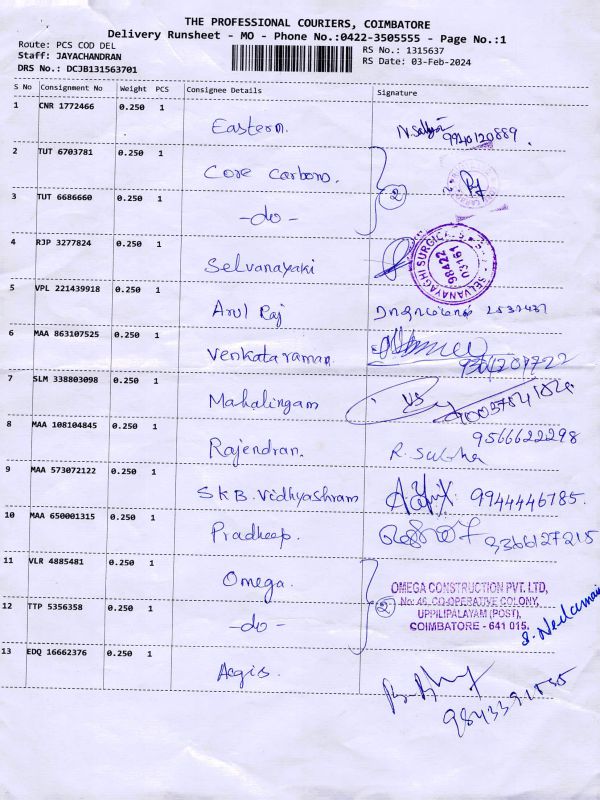 THE PROFESSIONAL COURIERS, COIMBATORE
Delivery Runsheet - MO - Phone No.:0422-3505555 - Page No.:1
Route: PCS COD DEL
Staff: JAYACHANDRAN
DRS No.: DCJB131563701
RS No.: 1315637
RS Date: 03-Feb-2024
S No Consignment No Weight PCS Consignee Details Signature
1 CNR 1772466 0.250 1 Eastern. 9940120889.
2 TUT 6703781 0.250 1 Core Carbons. 2
3 TUT 6686660 0.250 1 -do-
4 RJP 3277824 0.250 1 Selvanayaki SELVANAYAGHI SURGICALS 98422
5 VPL 221439918 0.250 1 Arul Raj
6 MAA 863107525 0.250 1 Venkataraman.
7 SLM 338803098 0.250 1 Mahalingam
8 MAA 108104845 0.250 1 Rajendran. R. Subha 9566622298
9 MAA 573072122 0.250 1 SKB. Vidhyashram 9944446785.
10 MAA 650001315 0.250 1 Pradheep. 9366127215
11 VLR 4885481 0.250 1 Omega. 2
OMEGA CONSTRUCTION PVT. LTD,
No: 46, CO-OPERATIVE COLONY,
UPPILIPALAYAM (POST),
COIMBATORE - 641 015.
12 TTP 5356358 0.250 1 -do-
13 EDQ 16662376 0.250 1 Aegis.